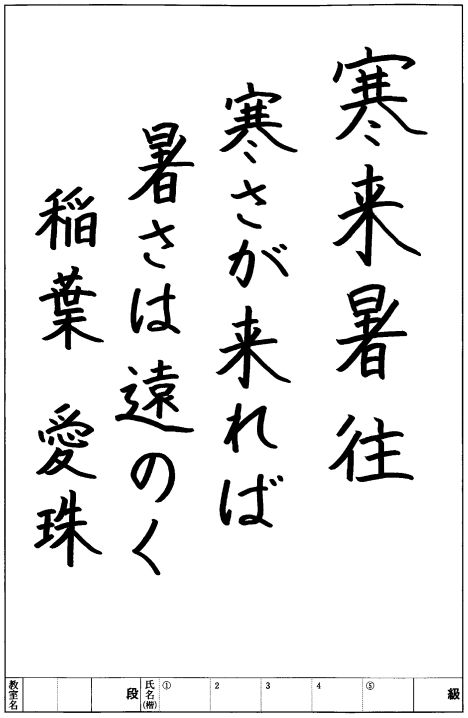 寒来暑往
寒さが来れば
暑さは遠のく
稲葉 愛珠
級
⑤ 4 3 2 ①
氏名(楷)
段
教室名